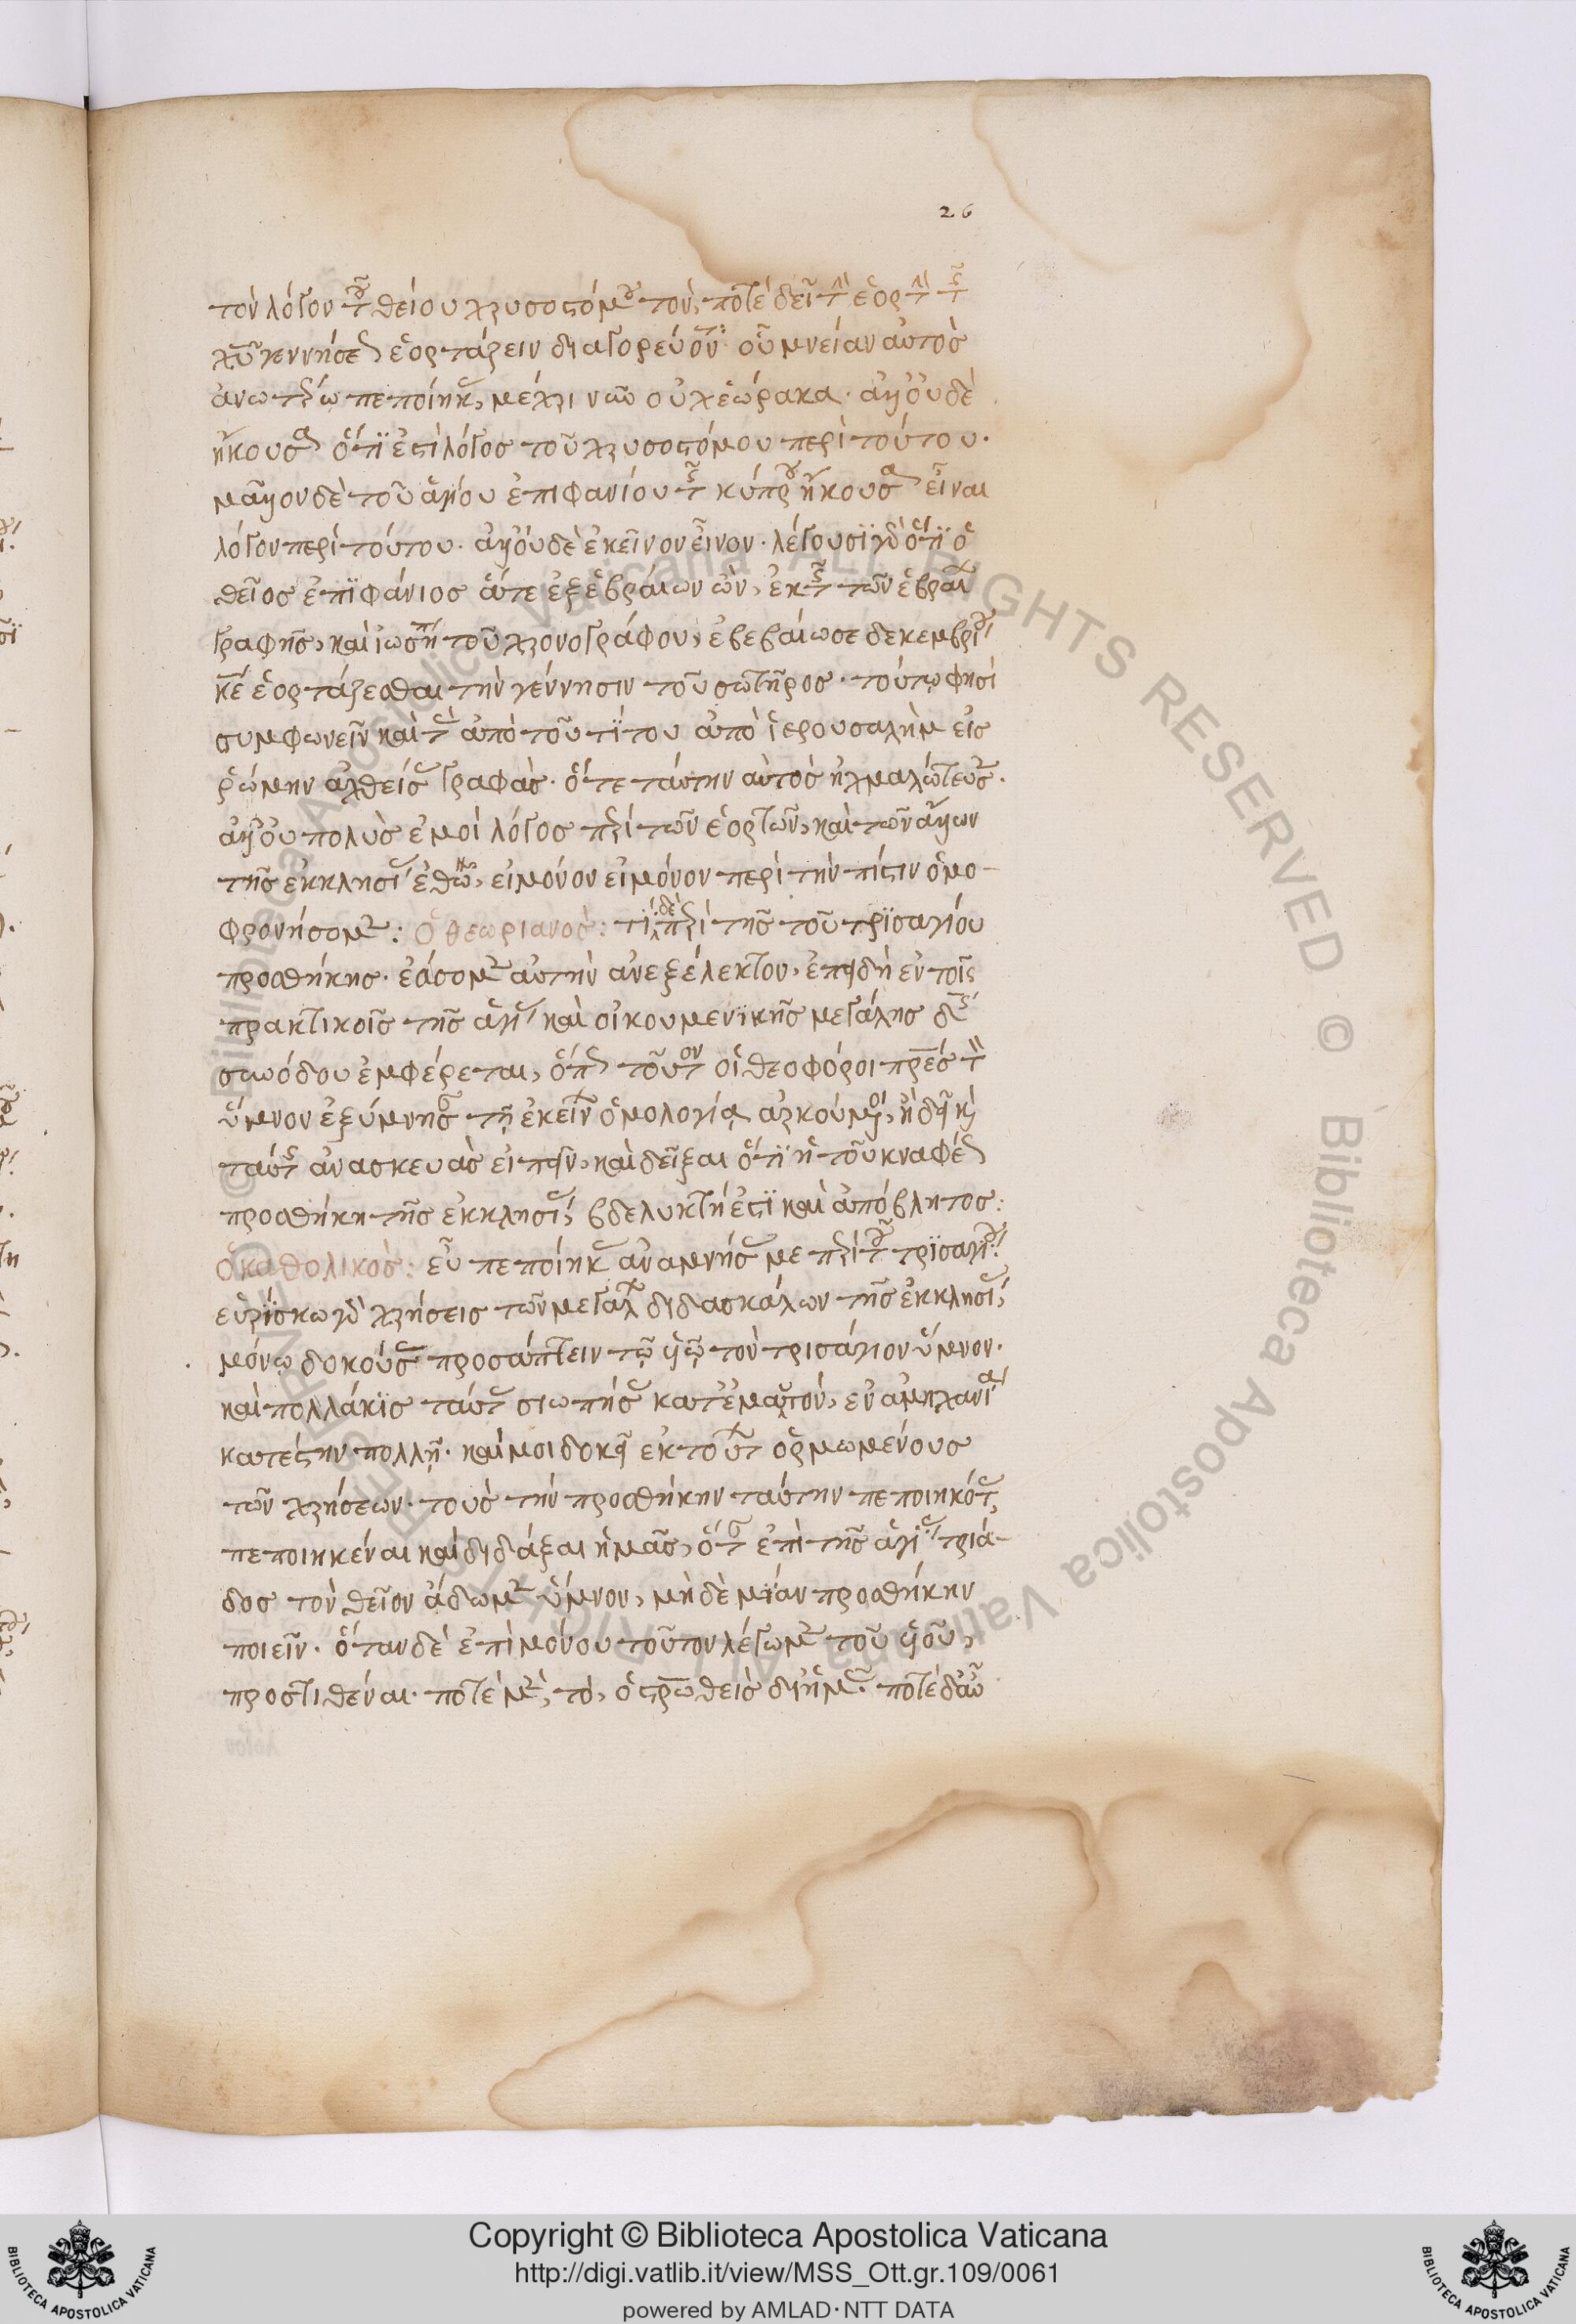 26
τὸν λόγον τοῦ θείου χρυσοστόμου τὸν, πότε δεῖ τὴν ἑορτὴν τῆς
χυ γεννήσεως ἑορτάζειν διαγορεύοντα· οὗ μνείαν αὐτὸς
ἀνωτέρω πεποίηκας, μέχρι νῦν οὐχ ἑώρακα· ἀλλ' οὐδὲ
ἤκουσα ὅτι ἐστὶ λόγος τοῦ χρυσοστόμου περὶ τούτου·
μᾶλλον δὲ τοῦ ἁγίου ἐπιφανίου τῆς κύπρου ἤκουσα εἶναι
λόγον περὶ τούτου· ἀλλ' οὐδὲ ἐκεῖνον εἶδον· λέγουσι γὰρ ὅτι ὁ
θεῖος ἐπιφάνιος ἅτε ἐξ ἑβραίων ὢν, ἐκ τῆς τῶν ἑβραίων
γραφῆς, καὶ ἰωσήπου τοῦ χρονογράφου, ἐβεβαίωσε δεκεμβρίου
κε ἑορτάζεσθαι τὴν γέννησιν τοῦ σωτῆρος· τούτῳ φησὶ
συμφωνεῖν καὶ τὰς ἀπὸ τοῦ τίτου ἀπὸ ἱερουσαλὴμ εἰς
ῥώμην ἀχθείσας γραφάς· ὅτε ταύτην αὐτὸς ᾐχμαλώτευσεν·
ἀλλ' οὐ πολὺς ἐμοὶ λόγος περὶ τῶν ἑορτῶν, καὶ τῶν ἄλλων
τῆς ἐκκλησίας ἐθῶν, εἰ μόνον εἰ μόνον περὶ τὴν πίστιν ὁμο-
φρονήσομεν: ὁ θεωριανός: τί δὲ περὶ τῆς τοῦ τρισαγίου
προσθήκης· ἐάσομεν αὐτὴν ἀνεξέλεκτον, ἐπειδὴ ἐν τοῖς
πρακτικοῖς τῆς ἁγίας καὶ οἰκουμενικῆς μεγάλης δης
συνόδου ἐμφέρεται, ὅπως τοῦτον οἱ θεοφόροι πρες τὸν
ὕμνον ἐξύμνησαν τῇ ἐκείνων ὁμολογίᾳ ἀρκούμενοι, ἢ δεῖ καὶ
ταύτης ἀνασκευὰς εἰπεῖν, καὶ δεῖξαι ὅτι ἡ τοῦ κναφέως
προσθήκη τῆς ἐκκλησίας, βδελυκτή ἐστι καὶ ἀπόβλητος:
ὁ καθολικός: εὖ πεποίηκας ἀναμνήσας με περὶ τοῦ τρισαγίου·
εὑρίσκω γὰρ χρήσεις τῶν μεγάλων διδασκάλων τῆς ἐκκλησίας,
μόνῳ δοκούσας προσάπτειν τῷ υἱῷ τὸν τρισάγιον ὕμνον·
καὶ πολλάκις ταύτας σιωπήσας κατ' ἐμαυτὸν, ἐν ἀμηχανίᾳ
κατέστην πολλῇ· καί μοι δοκεῖ ἐκ τούτων ὁρμωμένους
τῶν χρήσεων· τοὺς τὴν προσθήκην ταύτην πεποιηκότας,
πεποιηκέναι καὶ διδάξαι ἡμᾶς, ὅταν ἐπὶ τῆς ἁγίας τριά-
δος τὸν θεῖον ᾄδωμεν ὕμνον, μὴ δὲ μίαν προσθήκην
ποιεῖν· ὅταν δὲ ἐπὶ μόνου τοῦτον λέγωμεν τοῦ υἱοῦ,
προστιθέναι· ποτὲ μὲν, τὸ, ὁ στρωθεὶς δι' ἡμᾶς· ποτὲ δ' αὖ